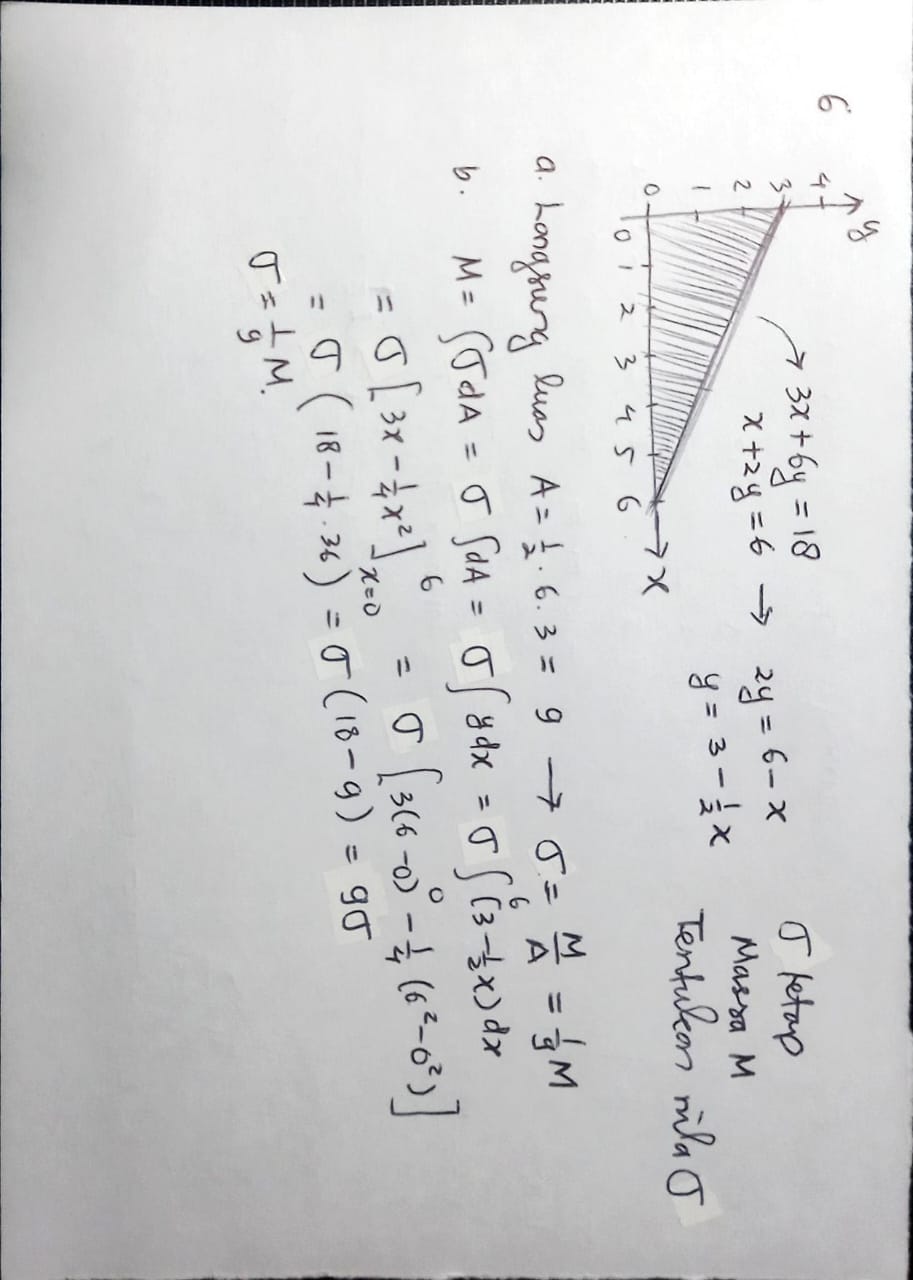 6
y
4
3
2
1
0
0 1 2 3 4 5 6
x
3x + 6y = 18
x + 2y = 6 → 2y = 6 - x
y = 3 - 1/2 x
σ tetap
Massa M
Tentukan nila σ
a. Langsung luas A = 1/2 . 6 . 3 = 9 → σ = M/A = 1/9 M
b. M = ∫σ dA = σ ∫dA = σ ∫ y dx = σ ∫₀⁶ (3 - 1/2 x) dx
= σ [3x - 1/4 x²]⁶ₓ₌₀ = σ [3(6 - 0) - 1/4 (6² - 0²)]
= σ (18 - 1/4 . 36) = σ (18 - 9) = 9σ
σ = 1/9 M.